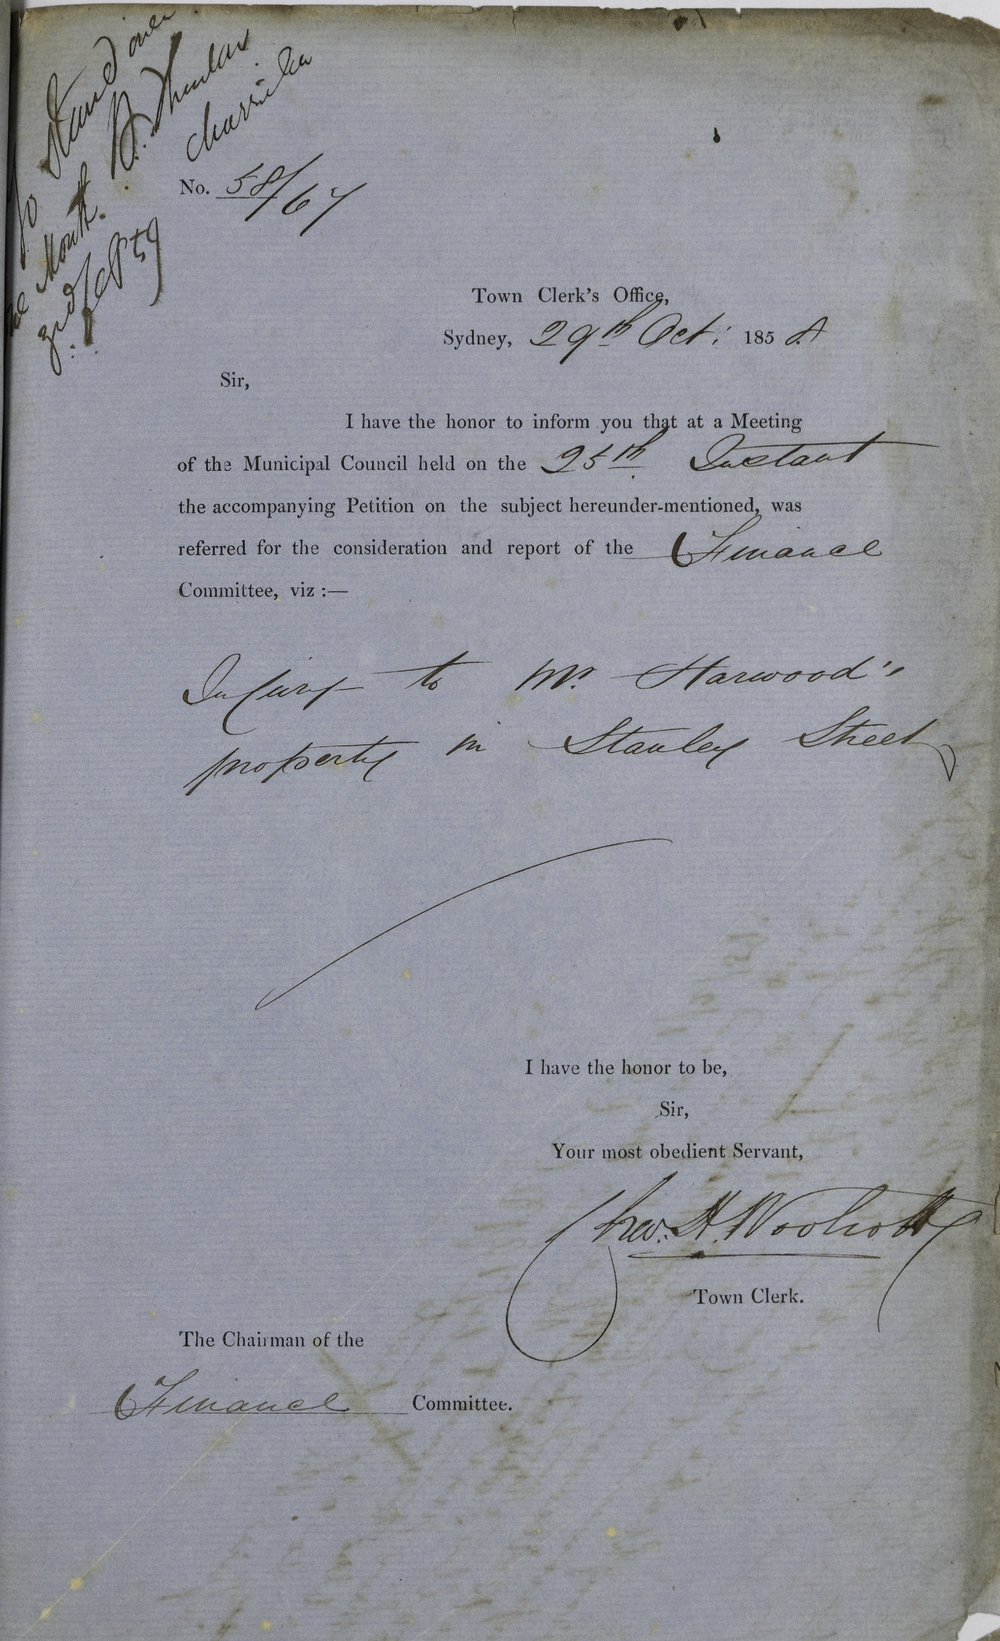 To Stand over
one Month.
3rd Feb 59
No. 58/67
Town Clerk's Office,
Sydney, 29th Oct: 1858.
Sir,
I have the honor to inform you that at a Meeting
of the Municipal Council held on the 25th Instant
the accompanying Petition on the subject hereunder-mentioned, was
referred for the consideration and report of the Finance
Committee, viz :—
Injury to Mr. Harwood's
property in Stanley Street
I have the honor to be,
Sir,
Your most obedient Servant,
Chas. H. Woolcott
Town Clerk.
The Chairman of the
Finance Committee.